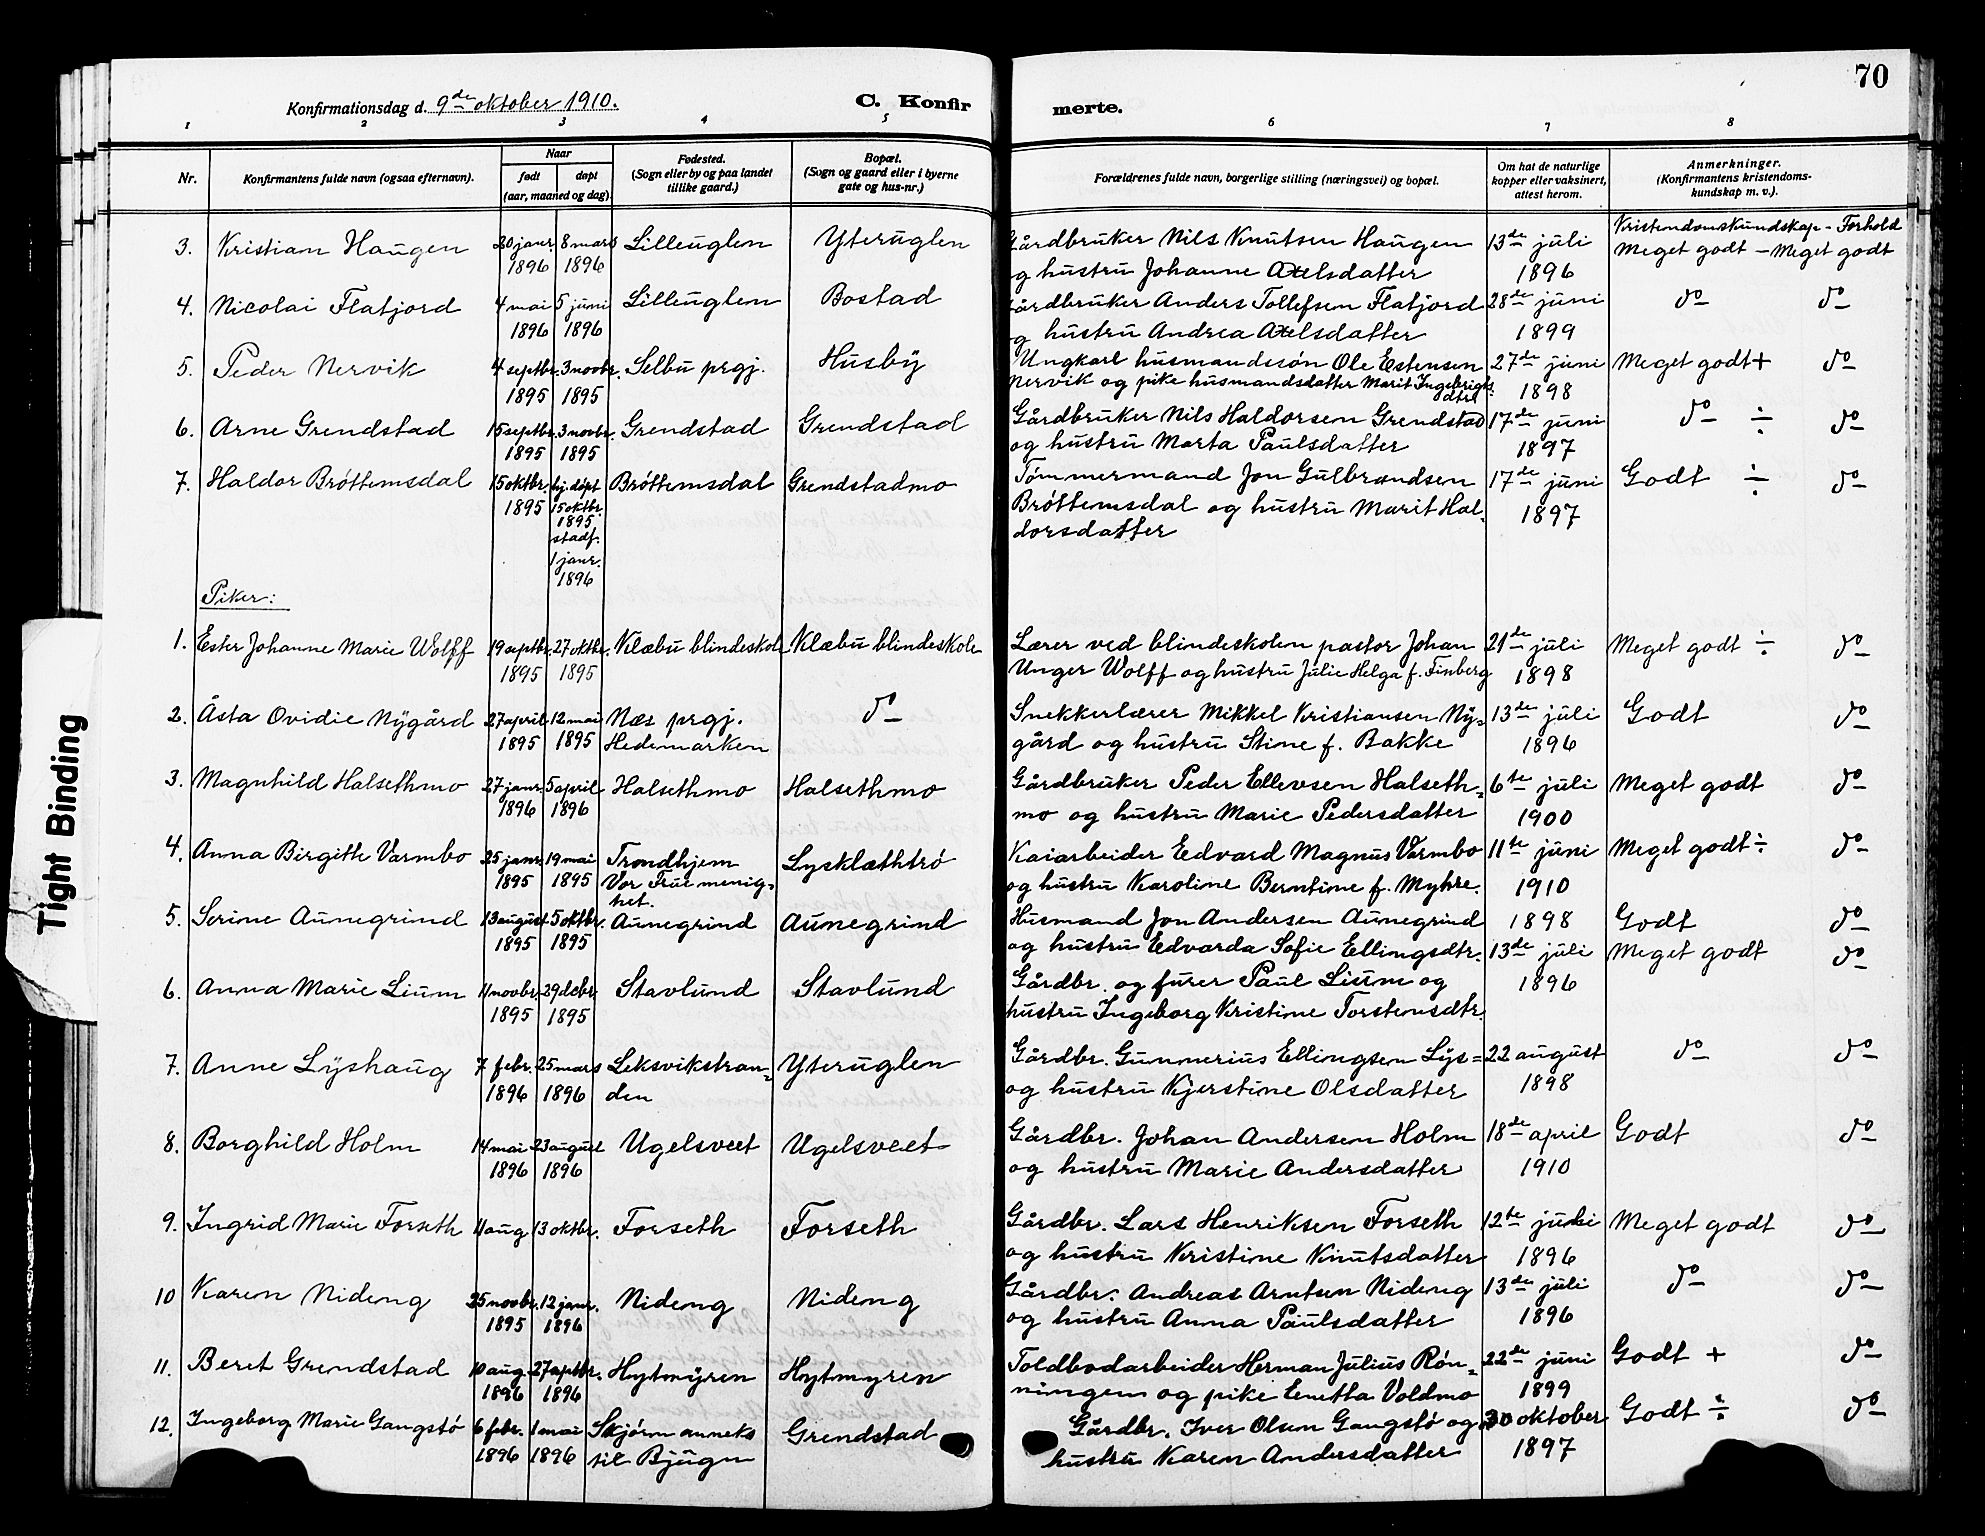 70
Konfirmationsdag d. 9de oktober 1910.
C. Konfir
merte.
1 2 3 4 5 6 7 8
Nr.
Konfirmantens fulde navn (ogsaa efternavn).
Naar
født
døpt
(aar, maaned og dag).
Fødested.
(Sogn eller by og paa landet
tillike gaard.)
Bopæl.
(Sogn og gaard eller i byerne
gate og hus-nr.)
Forældrenes fulde navn, borgerlige stilling (næringsvei) og bopæl.
Om hat de naturlige
kopper eller vaksinert,
attest herom.
Anmerkninger.
(Konfirmantens kristendoms-
kundskap m. v.).
Kristendomskundskap - Forhold
3. Kristian Haugen 20 janr. 8 mars Lilleuglen Yteruglen Gårdbruker Nils Knutsen Haugen 13de juli Meget godt - Meget godt
1896 1896 og hustru Johanne Axelsdatter 1896
4. Nicolai Flatjord 4 mai 5 juni Lilleuglen Bostad Gårdbruker Anders Tollefsen Flatjord 28de juni do do
1896 1896 og hustru Andrea Axelsdatter 1899
5. Peder Nervik 4 septbr. 3 novbr. Selbu prgj. Husby Ungkarl husmandssøn Ole Estensen 27de juni Meget godt + do
1895 1895 Nervik og pike husmandsdatter Marit Ingebrigts 1898
dtr.
6. Arne Grendstad 15 septbr. 3 novbr. Grendstad Grendstad Gårdbruker Nils Haldorsen Grendstad 17de juni do ÷ do
1895 1895 og hustru Marta Paulsdatter 1897
7. Haldor Brøttemsdal 15 oktbr. hj. døpt Brøttemsdal Grendstadmo Tømmermand Jon Gulbrandsen 17de juni Godt ÷ do
1895 15 oktbr. Brøttemsdal og hustru Marit Hal- 1897
1895 dorsdatter
stadf.
1 janr.
1896
Piker:
1. Ester Johanne Marie Wolff 19 septbr. 27 oktbr. Klæbu blindeskole Klæbu blindeskole Lærer ved blindeskolen pastor Johan 21de juli Meget godt ÷ do
1895 1895 Unger Wolff og hustru Julie Helga f. Finberg 1898
2. Åsta Ovidie Nygård 27 april 12 mai Næs prgj. do Snekkerlærer Mikkel Kristiansen Ny- 13de juli Godt do
1895 1895 Hedemarken gård og hustru Stine f. Bakke 1896
3. Magnhild Halsethmo 27 janr. 5 april Halsethmo Halsethmo Gårdbruker Peder Ellevsen Halseth- 6te juli Meget godt do
1896 1896 mo og hustru Marie Pedersdatter 1900
4. Anna Birgitte Varmbo 25 janr. 19 mai Trondhjem Lysklæthtrø Kaiarbeider Edvard Magnus Varmbo 11te juni Meget godt ÷ do
1895 1895 Vor Frue menig- og hustru Karoline Berntine f. Myhre. 1910
het.
5. Serine Aunegrind 13 august 5 oktbr. Aunegrind Aunegrind Husmand Jon Andersen Aunegrind 1898 Godt do
1895 1895 og hustru Edvarda Sofie Ellingsdtr.
6. Anna Marie Lium 11 novbr. 29 debr. Stavlund Stavlund Gårdbr. og furer Paul Lium og 13de juli Meget godt do
1895 1895 hustru Ingeborg Kristine Torstensdtr. 1896
7. Anne Lyshaug 7 febr. 25 mars Leksvikstran- Yteruglen Gårdbr. Gunnerius Ellingsen Lys- 22 august do do
1896 1896 den og hustru Kjerstine Olsdatter 1898
8. Borghild Holm 14 mai 23 august Ugelsveet Ugelsveet Gårdbr. Johan Andersen Holm 18de april Godt do
1896 1896 og hustru Marie Andersdatter 1910
9. Ingrid Marie Forseth 11 aug 13 oktbr. Forseth Forseth Gårdbr. Lars Henriksen Forseth 12te Meget godt do
og hustru Kristine Knutsdatter 1896
10 Karen Nideng 25 novbr. 12 janr. Nideng Nideng Gårdbr. Andreas Arntsen Nideng 13de juli do do
1895 1896 og hustru Anna Paulsdatter 1896
11. Beret Grendstad 10 aug. 27 Hytmyren Hytmyren Toldbodarbeider Herman Julius Røn- 22de juni Godt + do
1896 1896 ningen og pike Enetta Voldmo 1899
12. Ingeborg Marie Gangstø 6 febr. 1 mai Skjørn anneks Grendstad Gårdbr. Iver Olsen Gangstø og 30 oktober Godt ÷ do
1896 1896 til Bjugn hustru Karen Andersdatter 1897
Tight Binding